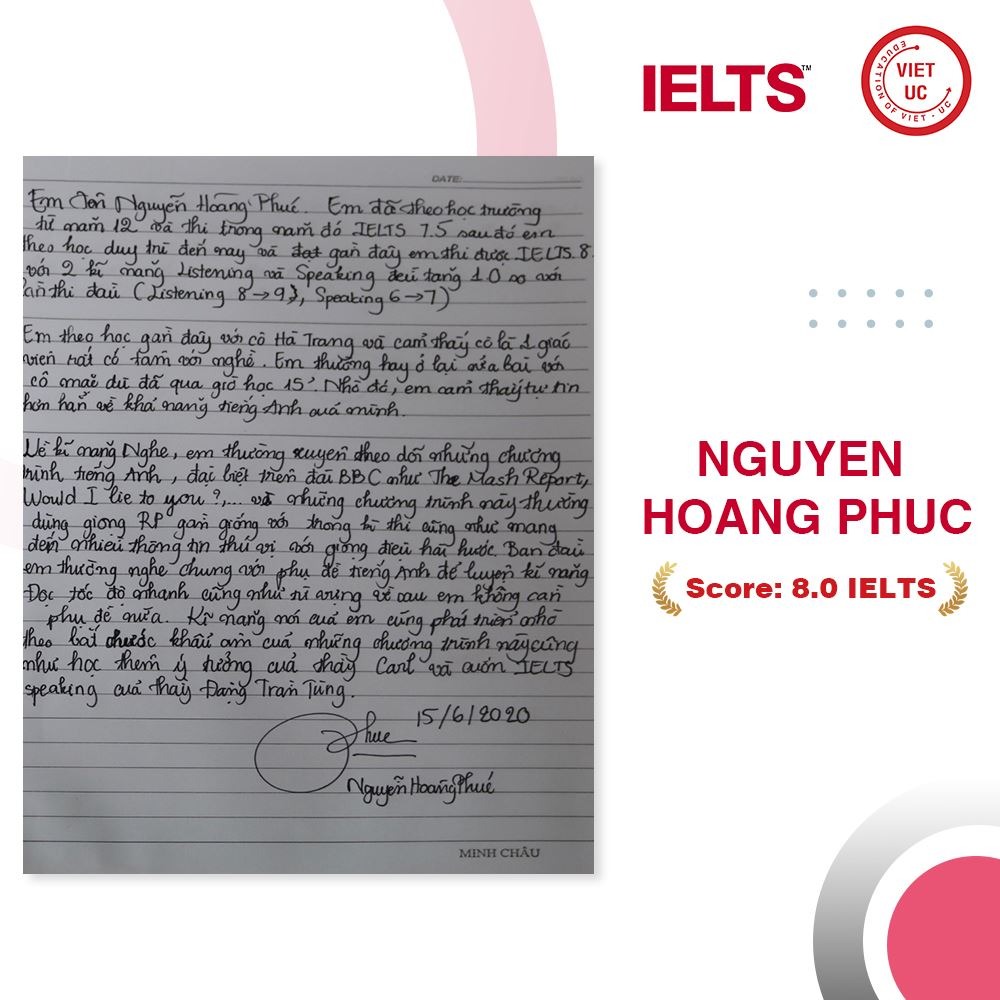 IELTS™
VIET UC
EDUCATION OF VIET - UC
DATE:
Em tên Nguyễn Hoàng Phúc. Em đã theo học trường
từ năm 12 và thi trong năm đó IELTS 7.5 sau đó em
theo học duy trì đến nay và đạt gần đây em thi được IELTS 8.
với 2 kĩ năng Listening và Speaking đều tăng 1.0 so với
lần thi đầu (Listening 8→9, Speaking 6→7)
Em theo học gần đây với cô Hà Trang và cảm thấy cô là 1 giáo
viên rất có tâm với nghề. Em thường hay ở lại sửa bài với
cô mặc dù đã qua giờ học 15'. Nhờ đó, em cảm thấy tự tin
hơn hẳn về khả năng tiếng Anh của mình.
Về kĩ năng Nghe, em thường xuyên theo dõi những chương
trình tiếng Anh, đặc biệt trên đài BBC như The Mash Report,
Would I lie to you?,... những chương trình này thường
dùng giọng RP gần giống với trong kì thi cũng như mang
đến nhiều thông tin thú vị với giọng điệu hài hước. Ban đầu
em thường nghe chung với phụ đề tiếng Anh để luyện kĩ năng
Đọc tốc độ nhanh cũng như từ vựng về sau em không cần
phụ đề nữa. Kĩ năng nói của em cũng phát triển nhờ
theo bắt chước khẩu âm của những chương trình này cũng
như học thêm ý tưởng của thầy Carl và cuốn IELTS
speaking của thầy Đặng Trần Tùng.
15/6/2020
Phuc
Nguyễn Hoàng Phúc
MINH CHÂU
NGUYEN
HOANG PHUC
Score: 8.0 IELTS